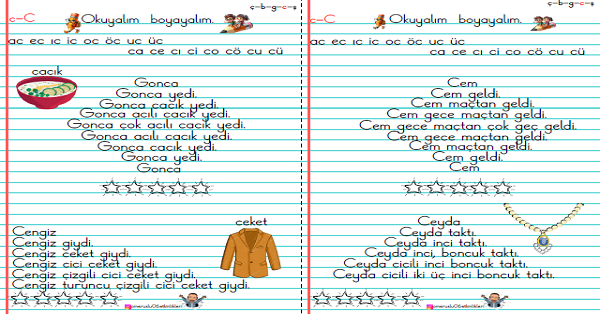 c-C Okuyalım boyayalım.
ac ec ıc ic oc öc uc üc
ca ce cı ci co cö cu cü
cacık
Gonca
Gonca yedi.
Gonca cacık yedi.
Gonca acılı cacık yedi.
Gonca çok acılı cacık yedi.
Gonca acılı cacık yedi.
Gonca cacık yedi.
Gonca yedi.
Gonca
ceket
Cengiz
Cengiz giydi.
Cengiz ceket giydi.
Cengiz cici ceket giydi.
Cengiz çizgili cici ceket giydi.
Cengiz turuncu çizgili cici ceket giydi.
ç-b-g-c-ş
c-C Okuyalım boyayalım.
ac ec ıc ic oc öc uc üc
ca ce cı ci co cö cu cü
Cem
Cem geldi.
Cem maçtan geldi.
Cem gece maçtan geldi.
Cem gece maçtan çok geç geldi.
Cem gece maçtan geldi.
Cem maçtan geldi.
Cem geldi.
Cem
Ceyda
Ceyda taktı.
Ceyda inci taktı.
Ceyda inci, boncuk taktı.
Ceyda cicili inci boncuk taktı.
Ceyda cicili iki üç inci boncuk taktı.